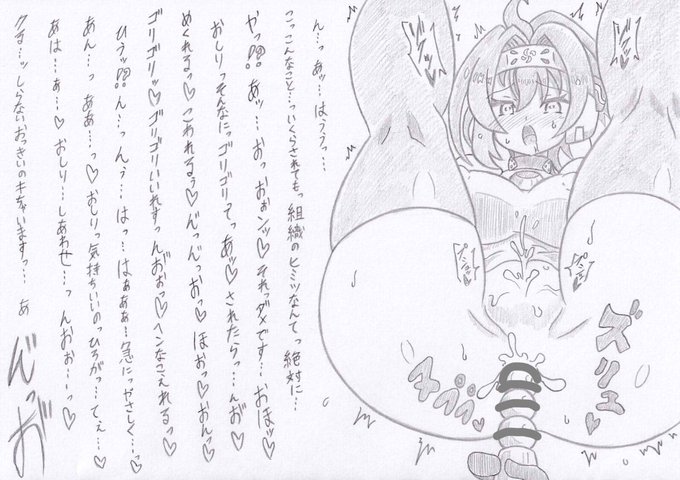 ん…っ あッ… はううっ…
こっこんなこと…っいくらされてもっ組織のヒミツなんてっ絶対に…
やっ⁉ あッ… おっ おぉンッ♡それっダメです…おほッ♡
おしりっそんなにっゴリゴリってっあッ♡されたらっ…んお♡
めくれるっ♡こわれるぅ♡んっんっおっ♡ほおっ♡おんっ♡
ゴリゴリッ♡ゴリゴリいいれすっんおぉっ♡ヘンなこえれるっ♡
ひうッ⁉ん…っんぅ…はっ…はぁぁぁ…急にっやさしく…っ♡
あん…っ ああ…っ♡おしりっ気持ちいいのっひろがっ…てぇ…♡
あは…ぁ…♡おしり…しあわせ…っんおぉ…ーっ♡
クる…ッしらないおっきいのキちゃいますっ…あ
んっお゛
ズリュ
ヌブブ